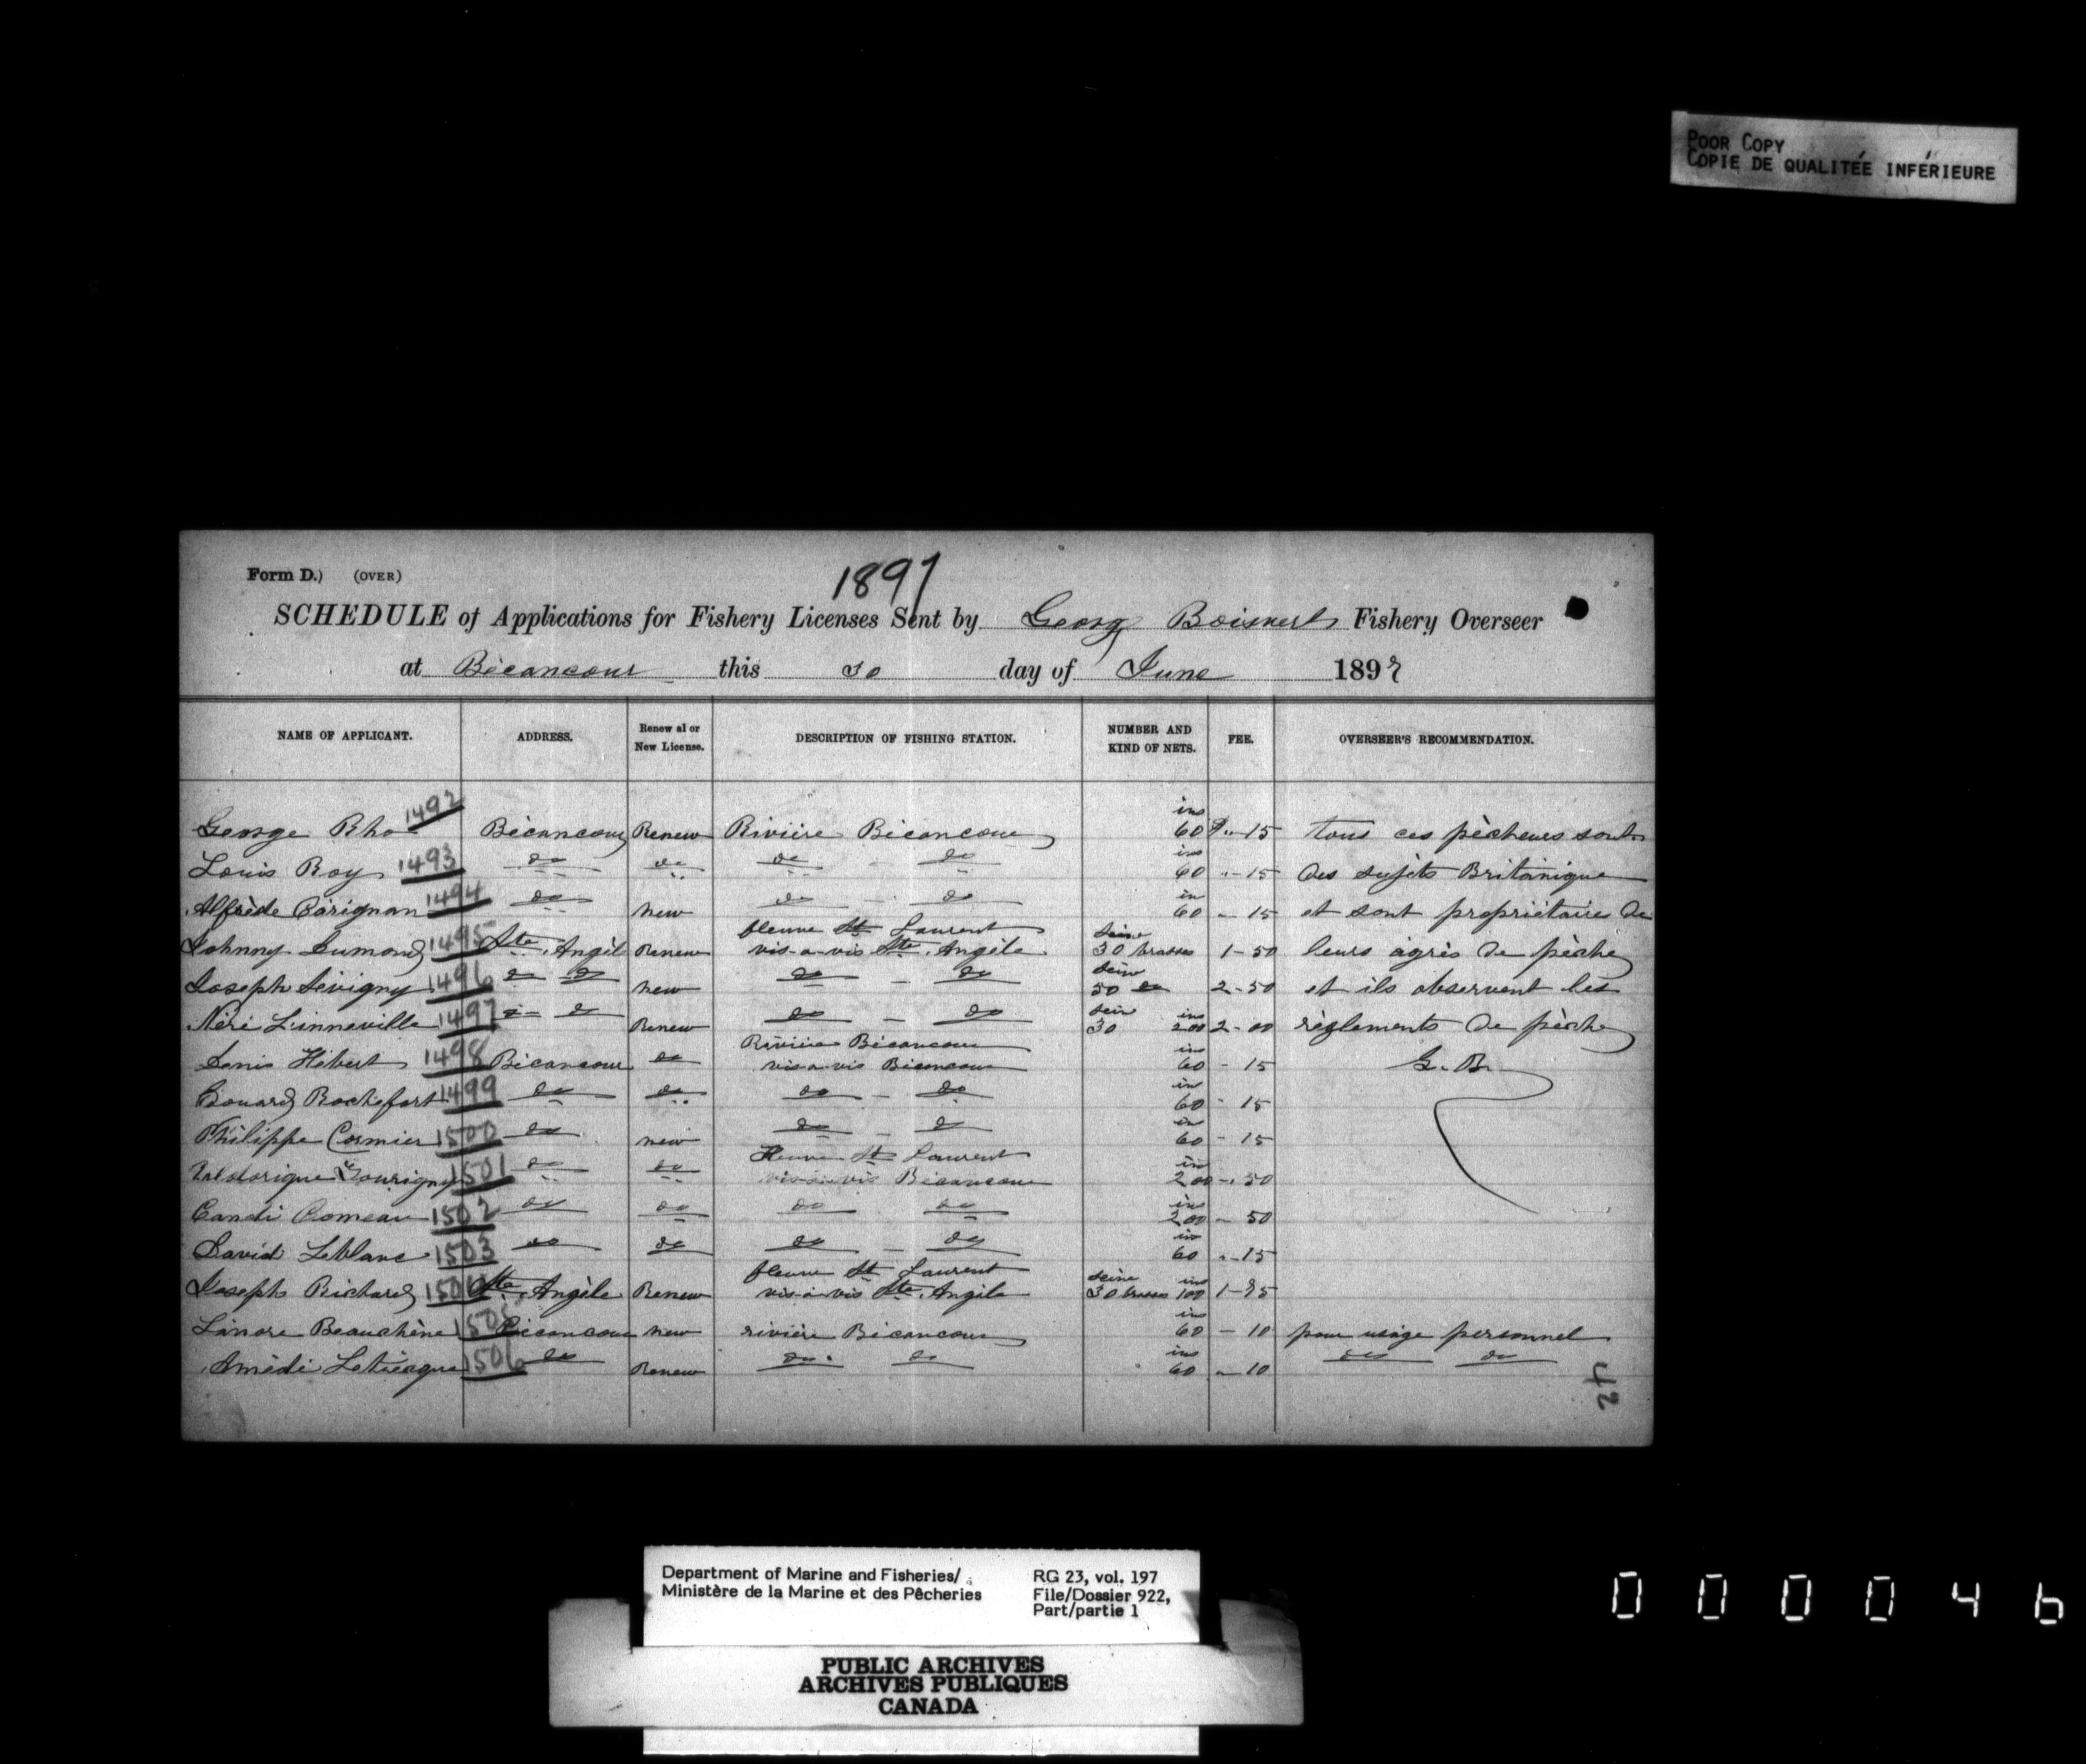 POOR COPY
COPIE DE QUALITÉE INFÉRIEURE
Form D.) (OVER)
1897
SCHEDULE of Applications for Fishery Licenses Sent by George Boisvert Fishery Overseer
at Bécancour this 30 day of June 1897
NAME OF APPLICANT. ADDRESS. Renewal or New License. DESCRIPTION OF FISHING STATION. NUMBER AND KIND OF NETS. FEE. OVERSEER'S RECOMMENDATION.
George Rho 1492 Bécancour Renew Rivière Bécancour ins 60 " 15 tous ces pêcheurs sont
Louis Roy 1493 do do do - do ins 60 " - 15 des sujets Britanique
Alfrède Carignan 1494 do new do - do in 60 - 15 et sont propriétaires de
Johnny Dumond 1495 Ste Angèl Renew fleuve St Laurent vis-a-vis Ste Angèle Seine 30 brasses 1-50 leurs agrès de pêche
Joseph Sévigny 1496 do do new do - do Seine 50 do 2-50 et ils observent les
Néri Linneville 1497 do do Renew do - do Sein 30 ins 200 2-00 règlements de pêche
Denis Hébert 1498 Bécancour do Rivière Bécancour vis-a-vis Bécancour in 60 - 15 G. B.
Edouard Rochefort 1499 do do do - do in 60 - 15
Philippe Cormier 1500 do new do - do in 60 - 15
Valdorique Tourigny 1501 do do Fleuve St Laurent vis-a-vis Bécancour in 200 - 50
Candi Comeau 1502 do do do do in 200 - 50
David Leblanc 1503 do do do - do in 60 - 15
Joseph Richard 1504 Ste Angèle Renew fleuve St Laurent vis-à-vis Ste Angèle Seine 30 brasses ins 100 1-75
Beauchène 1505 Bécancour new rivière Bécancour in 60 - 10 pour usage personnel
Amédé 1506 do Renew do do ins 60 - 10 do do
42
Department of Marine and Fisheries/
Ministère de la Marine et des Pêcheries
RG 23, vol. 197
File/Dossier 922,
Part/partie 1
PUBLIC ARCHIVES
ARCHIVES PUBLIQUES
CANADA
000046